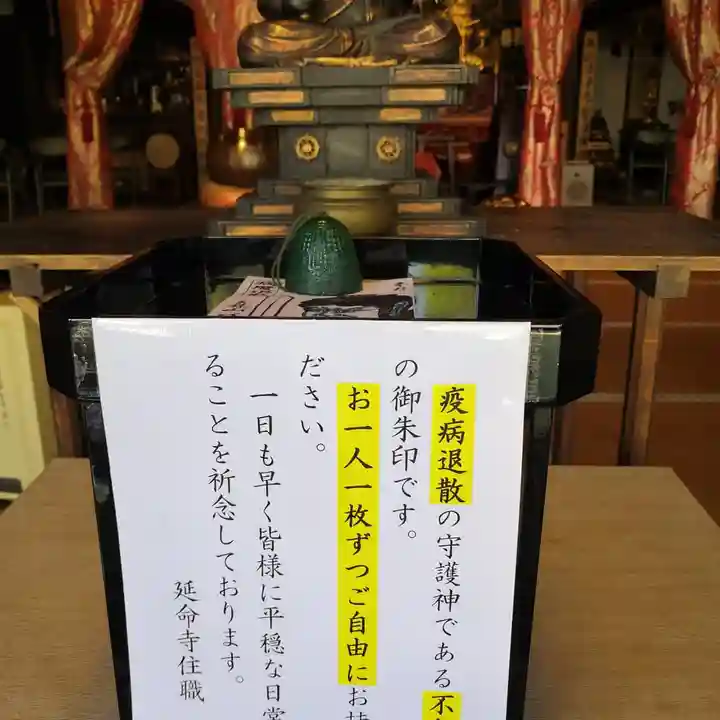 疫病退散の守護神である不
の御朱印です。
お一人一枚ずつご自由にお持
ださい。
一日も早く皆様に平穏な日常
ることを祈念しております。
延命寺住職